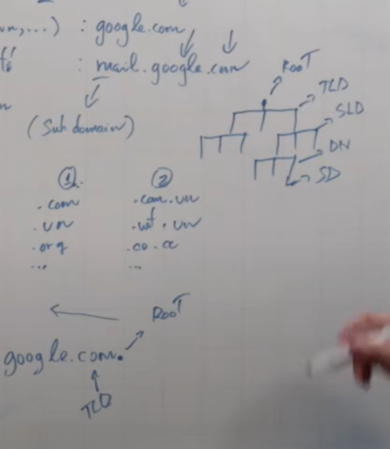 ...) : google.com
: mail.google.com
(Subdomain)
RooT
TLD
SLD
DN
SD
① ②
.com .com.vn
.vn .net.vn
.org .co.cc
... ...
RooT
google.com.
TLD